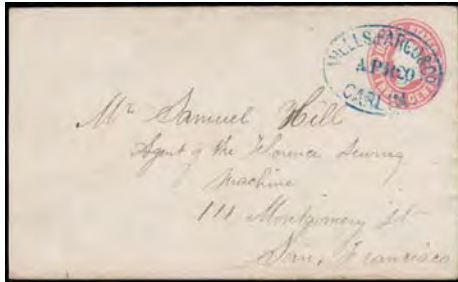 WELLS, FARGO & CO
APR 20
CARLIN
Mr Samuel Hill
Agent of the Florence Sewing
Machine
111 Montgomery St
San Francisco